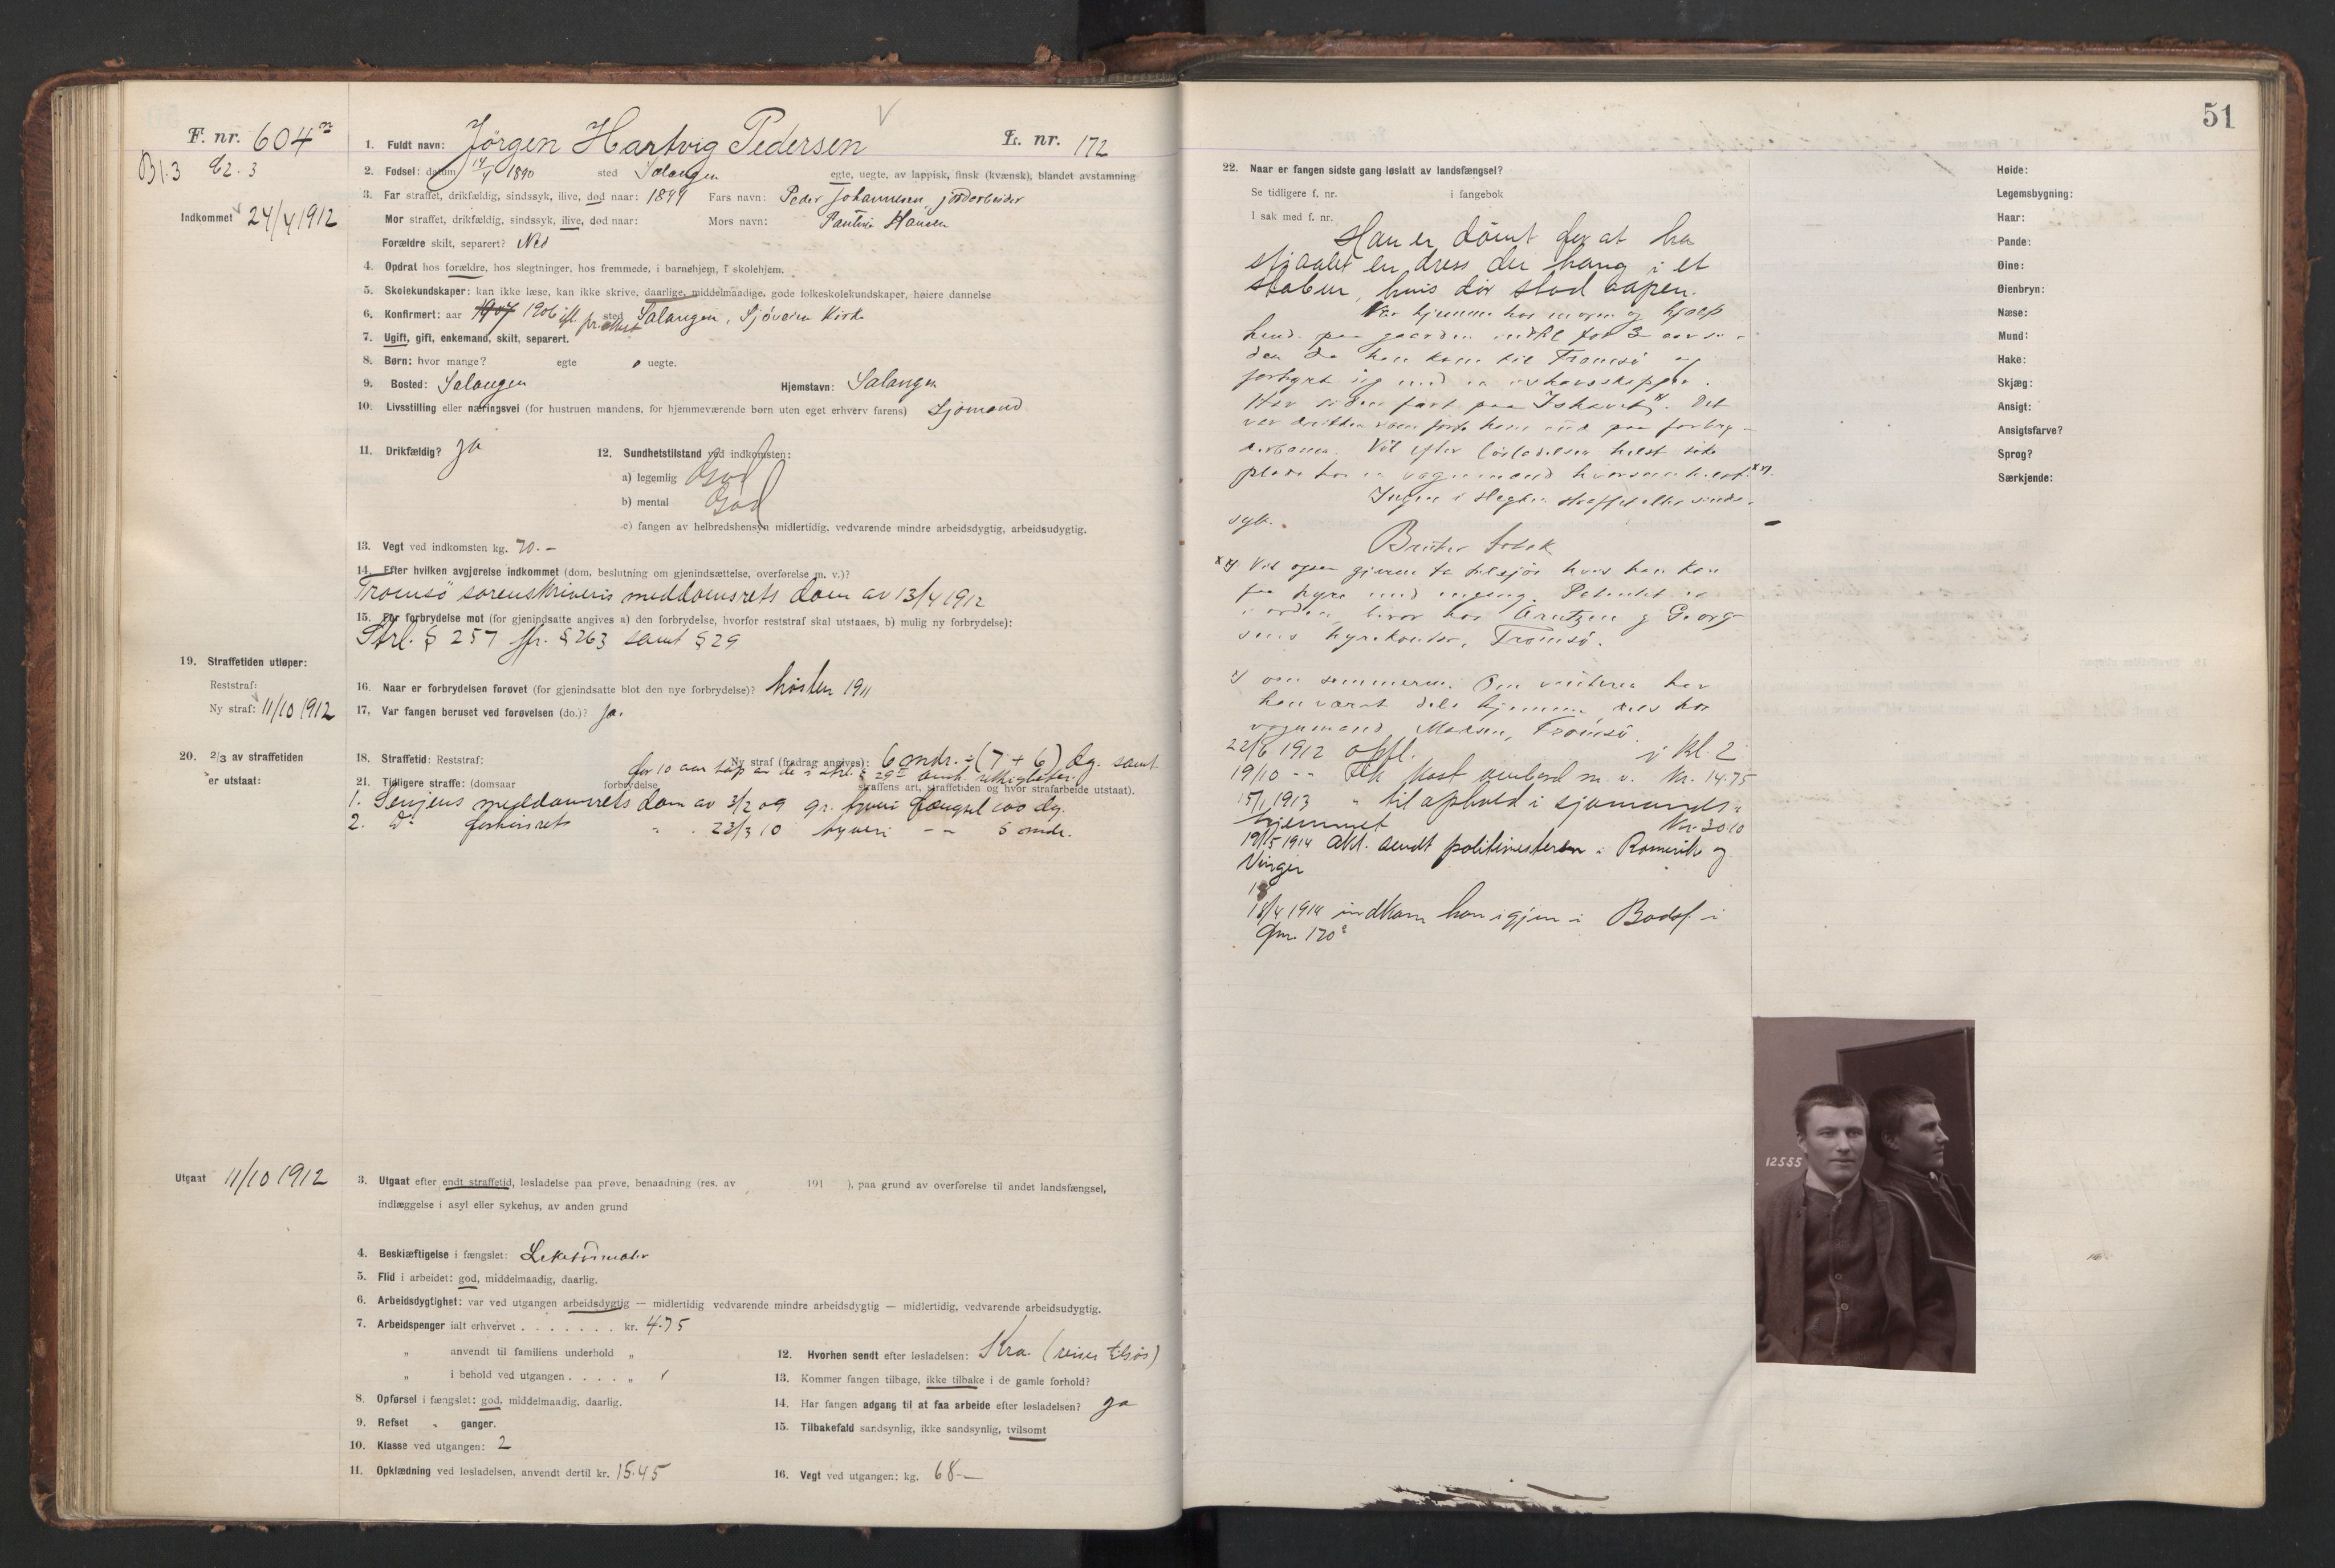 F. nr. 604
Bl. 3
Indkommet 24/4 1912
1. Fuldt navn: Jörgen Hartvig Pedersen
L. nr. 172
2. Fødsel: datum 14/4 1890 sted Salangen egte, uegte, av lappisk, finsk (kvænsk), blandet avstamning
3. Far straffet, drikfældig, sindssyk, ilive, død naar: 1899 Fars navn: Peder Johannesen, jordarbeider
Mor straffet, drikfældig, sindssyk, ilive, død naar: Mors navn: Hansen
Forældre skilt, separert? Nei
4. Opdrat hos forældre, hos slegtninger, hos fremmede, i barnehjem, i skolehjem.
5. Skolekundskaper: kan ikke læse, kan ikke skrive, daarlige, middelmaadige, gode folkeskolekundskaper, høiere dannelse
6. Konfirmert: aar 1907 1906 ifl. pr. attest sted Salangen, Sjöveien Kirke
7. Ugift, gift, enkemand, skilt, separert.
8. Børn: hvor mange? egte 0 uegte.
9. Bosted: Salangen Hjemstavn: Salangen
10. Livsstilling eller næringsvei (for hustruen mandens, for hjemmeværende børn uten eget erhverv farens) Sjømand
11. Drikfældig? ja
12. Sundhetstilstand ved indkomsten:
a) legemlig God
b) mental God
c) fangen av helbredshensyn midlertidig, vedvarende mindre arbeidsdygtig, arbeidsudygtig.
13. Vegt ved indkomsten kg. 70.-
14. Efter hvilken avgjørelse indkommet (dom, beslutning om gjenindsættelse, overførelse m. v.)?
Tromsö sorenskriveris meddomsrets dom av 13/4 1912
15. For forbrydelse mot (for gjenindsatte angives a) den forbrydelse, hvorfor reststraf skal utstaaes, b) mulig ny forbrydelse):
Strl. § 257 jfr. § 263 samt § 29
19. Straffetiden utløper:
Reststraf:
Ny straf: 11/10 1912
16. Naar er forbrydelsen forøvet (for gjenindsatte blot den nye forbrydelse)? høsten 1911
17. Var fangen beruset ved forøvelsen (do.)? ja.
20. 2/3 av straffetiden
er utstaat:
18. Straffetid: Reststraf: Ny straf (fradrag angives): 6 mdr. ÷ (7 + 6) dg. samt
for 10 aar tap av de i strl. § 29 rettigheter.
21. Tidligere straffe: (domsaar forbrydelse, straffens art, straffetiden og hvor strafarbeide utstaat).
1. Senjens meddomsrets dom av 3/2 09 gr. tyveri fængsel 100 dg.
2. Do forhørsrets " " 23/3 10 tyveri -"- 5 mdr.
Utgaat 11/10 1912
3. Utgaat efter endt straffetid, løsladelse paa prøve, benaadning (res. av 191 ), paa grund av overførelse til andet landsfængsel,
indlæggelse i asyl eller sykehus, av anden grund
4. Beskjæftigelse i fængslet:
5. Flid i arbeidet: god, middelmaadig, daarlig.
6. Arbeidsdygtighet: var ved utgangen arbeidsdygtig — midlertidig vedvarende mindre arbeidsdygtig — midlertidig, vedvarende arbeidsudygtig.
7. Arbeidspenger ialt erhvervet . . . . . . . kr. 4.75
" anvendt til familiens underhold "
" i behold ved utgangen . . . . "
8. Opførsel i fængslet: god, middelmaadig, daarlig.
9. Refset " ganger.
10. Klasse ved utgangen: 2
11. Opklædning ved løsladelsen, anvendt dertil kr. 15.45
12. Hvorhen sendt efter løsladelsen: Kra. (reiser tilsjøs)
13. Kommer fangen tilbage, ikke tilbake i de gamle forhold?
14. Har fangen adgang til at faa arbeide efter løsladelsen? ja
15. Tilbakefald sandsynlig, ikke sandsynlig, tvilsomt
16. Vegt ved utgangen: kg. 68.-
51
22. Naar er fangen sidste gang løslatt av landsfængsel?
Se tidligere f. nr. i fangebok
I sak med f. nr.
Han er dömt for at ha
stjaalet en dress der hang i et
stabur, hvis dör stod aapen.
Var hjemme hos moren og hjalp
hende paa gaarden indtil for 3 aar si-
den da han kom til Tromsö og
forhyret sig med en ishavsskipper.
Har siden fart paa Ishavet. Det
var drikken som førte ham ind paa forbry-
derbanen. Vil efter løsladelsen helst söke
plads hos en vognmand hvorsomhelst.
Ingen i slegten straffet eller sinds-
syk.
Bruker tobak
Vil ogsaa gjerne ta tilsjös hvis han kan
faa hyre med engang.
i orden, beror hos Arntzen & Georg-
sens hyrekontor, Tromsö.
om sommeren. Om vinteren har
han været dels hjemme dels hos
vognmand Tromsö.
22/6 1912 opfl. i kl. 2
19/10 -"- m. v. kr. 14.75
15/1 1913 " til ophold i sjømands-
hjemmet kr. 30.10
19/5 1914 akt. sendt politimesteren i Romerike og
Vinger
18/4 1914 indkom han igjen i Bodsf. i
fnr. 170
Høide:
Legemsbygning:
Haar:
Pande:
Øine:
Øienbryn:
Næse:
Mund:
Hake:
Skjæg:
Ansigt:
Ansigtsfarve?
Sprog?
Særkjende:
12555